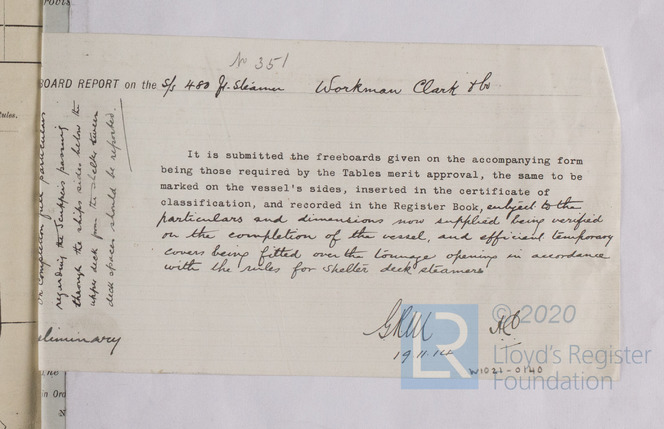 No 351
BOARD REPORT on the S/s 480 Yr. Steamer Workman Clark & Co
It is submitted the freeboards given on the accompanying form
being those required by the Tables merit approval, the same to be
marked on the vessel's sides, inserted in the certificate of
classification, and recorded in the Register Book, subject to the
particulars and dimensions now supplied being verified
on the completion of the vessel, and efficient temporary
covers being fitted over the tonnage opening in accordance
with the rules for shelter deck steamers
19.11.14
On completion full particulars
regarding the scuppers passing
through the ships sides below the
upper deck from the shelter tween
deck spaces should be reported.
eliminary
in Ord
© 2020
LR
Lloyd's Register
Foundation
W1021-0140